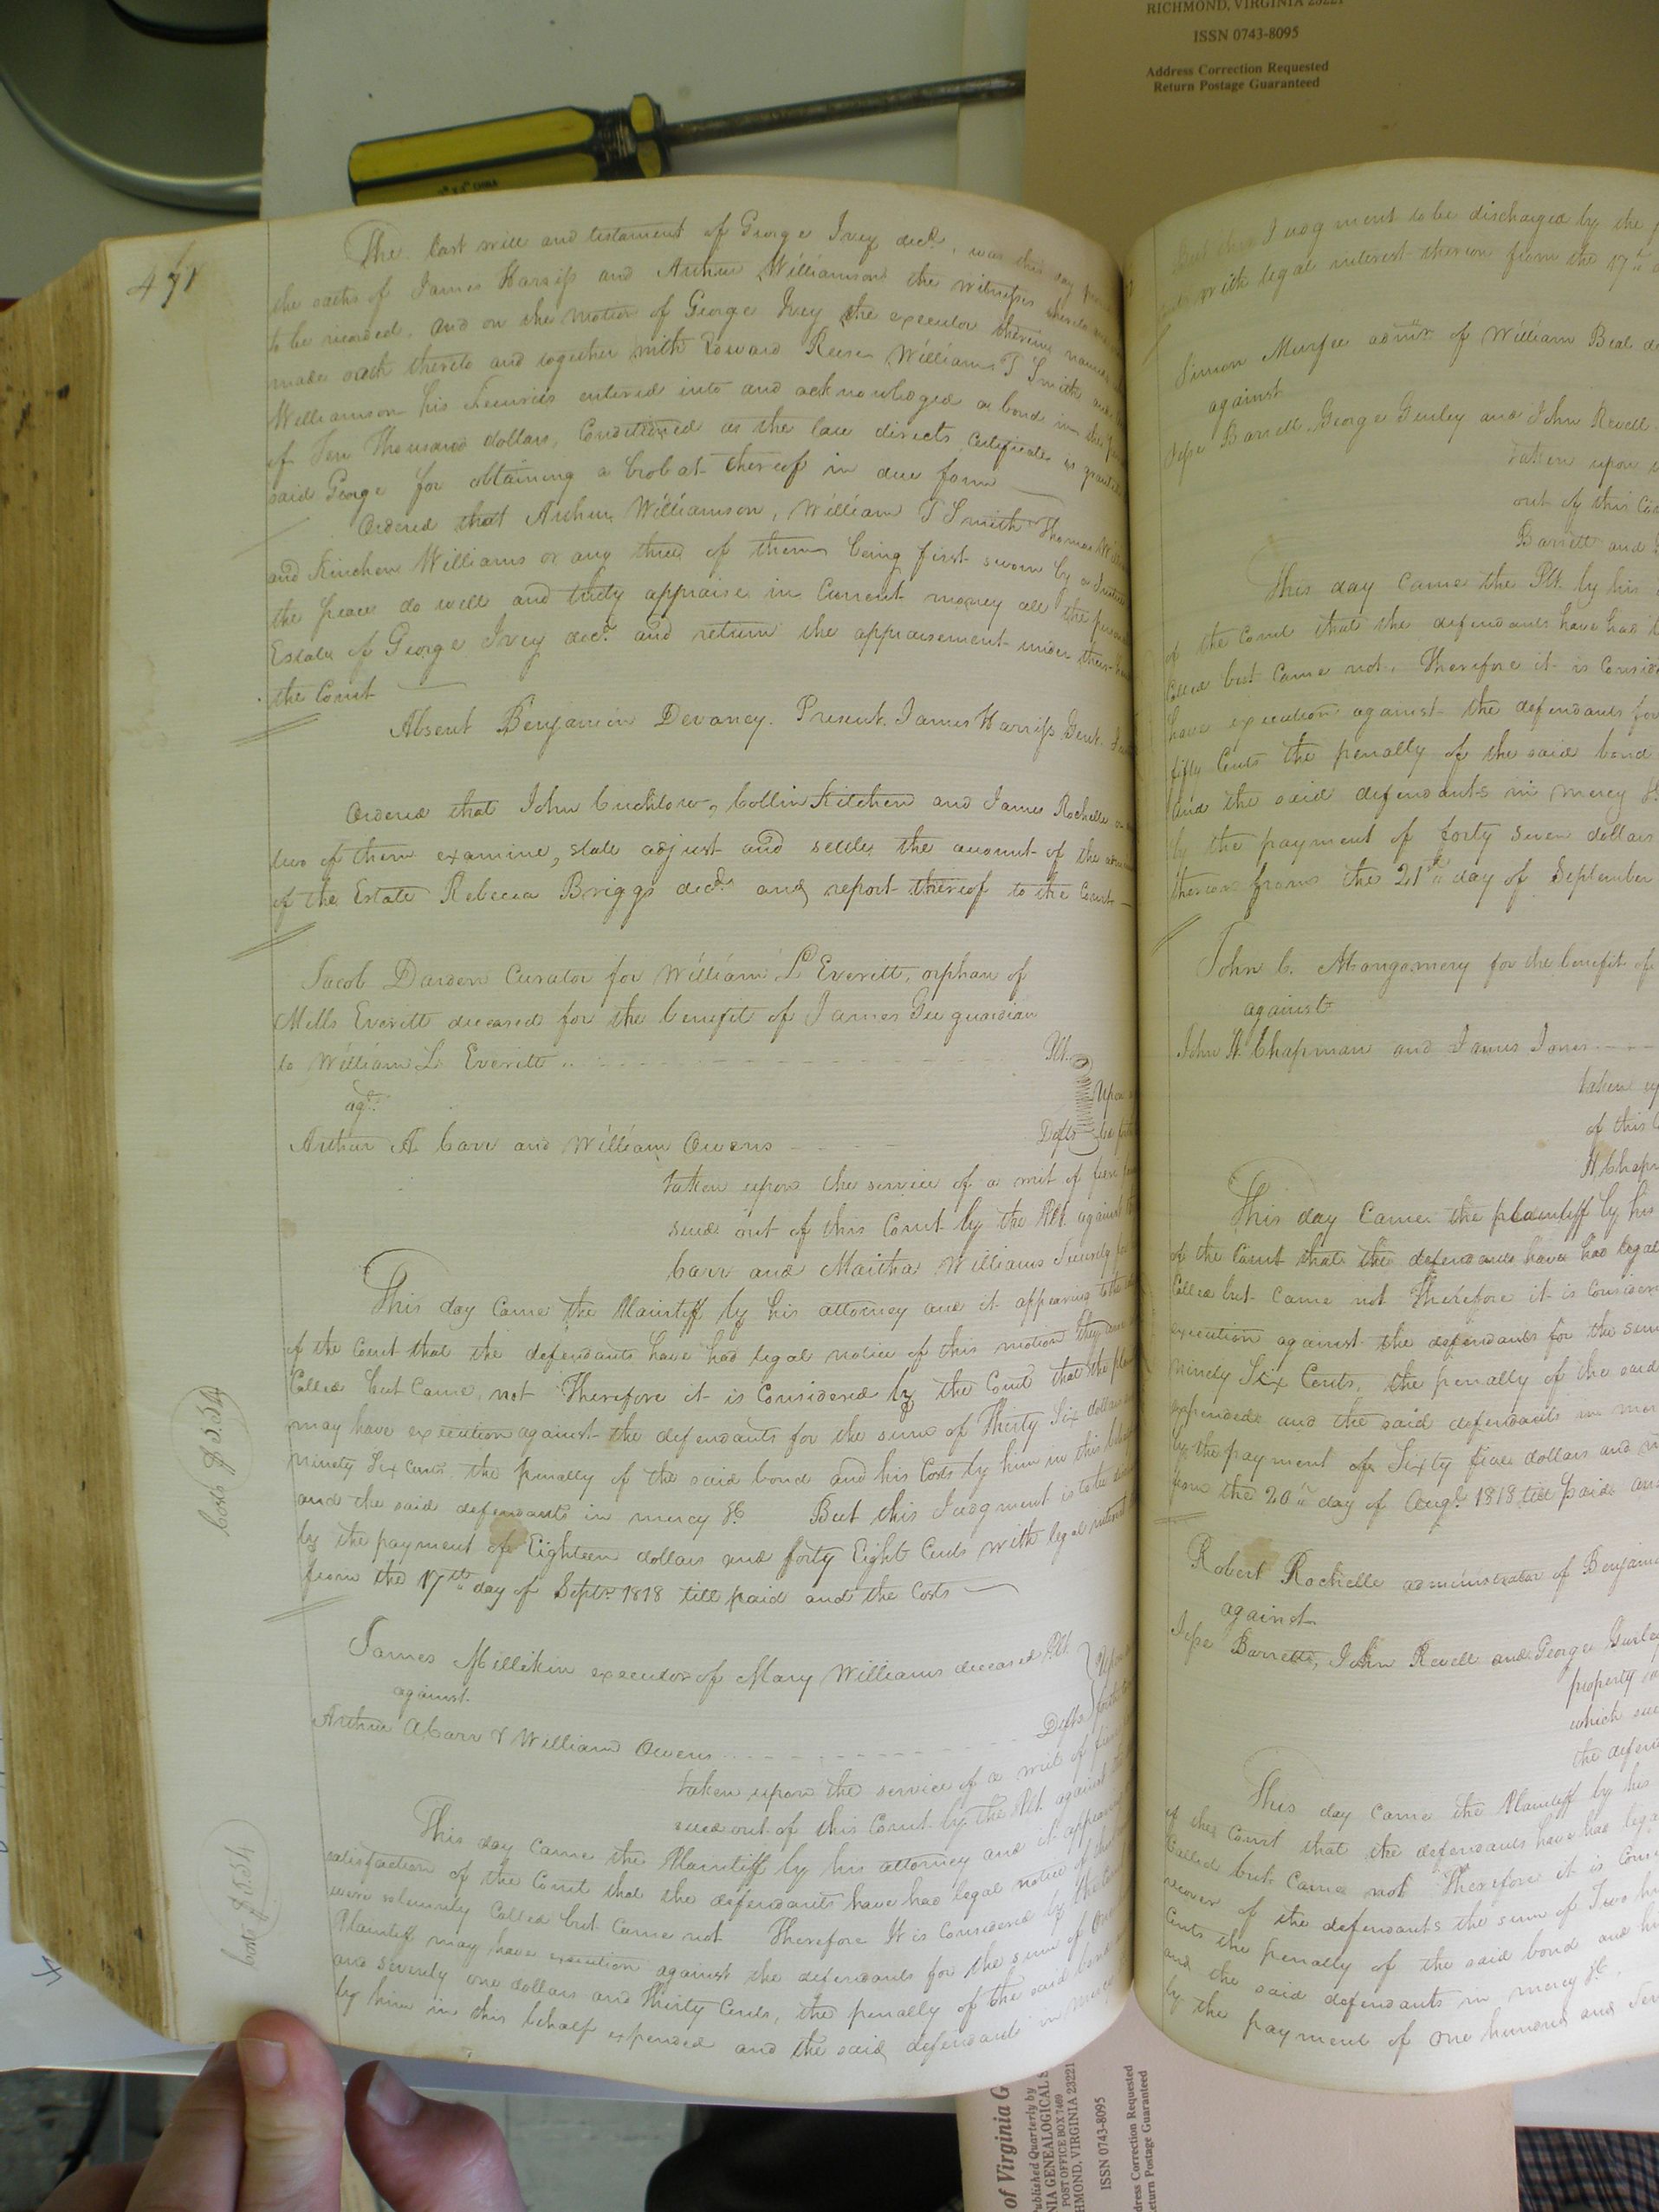 RICHMOND, VIRGINIA 23221
ISSN 0743-8095
Address Correction Requested
Return Postage Guaranteed
The last will and testament of George Ivey decd. was this day
the oaths of James Harriss and Arthur Williamson the witnesses thereto
to be recorded. And on the motion of George Ivey the executor therein named
made oath thereto and together with Edward Reese William T Smith and
Williamson his Securities entered into and acknowledged a bond in the
of Ten Thousand dollars, Conditioned as the law directs Certificate is granted
said George for obtaining a Probat thereof in due form
Ordered that Arthur Williamson, William T Smith Thomas
and Kinchen Williams or any three of them being first sworn by a Justice
the peace do well and truly appraise in Current money all the
Estate of George Ivey decd. and return the appraisement under their
the Court
Absent Benjamin Devaney. Present. James Harriss Gent.
Ordered that John Crichlow, Collin Kitchen and James Rochelle
two of them examine, state adjust and settle the account of the
of the Estate Rebecca Briggs decd. and report thereof to the Court
Jacob Darden Curator for William L Everitt, orphan of
Mills Everitt deceased for the benefit of James Gee guardian
to William L. Everitt Plt.
agt. Upon
Arthur A. Carr and William Owens Defts
taken upon the service of a writ of
sued out of this Court by the Plt. against
Carr and Martha Williams Security
This day Came the Plaintiff by his attorney and it appearing to the
of the Court that the defendants have had legal notice of this motion they
Called but Came not Therefore it is Considered by the Court that the
may have execution against the defendants for the sum of Thirty Six dollars
ninety Six Cents the penalty of the said bond and his Costs by him in this behalf
and the said defendants in mercy &c But this Judgment is to be
by the payment of Eighteen dollars and forty Eight Cents with legal interest
from the 17th day of Septr. 1818 till paid and the Costs
Costs $5.54
James Millikin executor of Mary Williams deceased Plt.
against Upon
Arthur A Carr & William Owens Defts
taken upon the service of a writ of
sued out of this Court by the Plt. against
This day Came the Plaintiff by his attorney and it appearing
satisfaction of the Court that the defendants have had legal notice of
were solemnly Called but Came not Therefore It is Considered by the
Plaintiff may have execution against the defendants for the sum of One
and seventy one dollars and Thirty Cents, the penalty of the said bond
by him in this behalf expended and the said defendants in mercy
Costs $5.54
But this Judgment to be discharged by the
with legal interest thereon from the 17th
Simon Murfee admr. of William Beal
against
Jesse Barrett, George Gurley and John Revell
taken upon
out of this
Barrett and
This day Came the Plt. by his
of the Court that the defendants have had
Called but Came not. Therefore it is
have execution against the defendants for
fifty Cents the penalty of the said bond
And the said defendants in mercy &
by the payment of forty seven dollars
thereon from the 21st day of September
John C. Montgomery for the benefit of
against
John H. Chapman and James Jones
taken
of this
H. Chap
This day Came the plaintiff by his
of the Court that the defendants have had legal
Called but Came not Therefore it is
execution against the defendants for the sum
ninety Six Cents, the penalty of the said
expended and the said defendants in
by the payment of Sixty five dollars and
from the 20th day of Augt. 1818 till paid and
Robert Rochelle administrator of Benjamin
against
Jesse Barrett, John Revell and George Gurley
property
which
the
This day Came the Plaintiff by his
of the Court that the defendants have had legal
Called but Came not Therefore it is
recover of the defendants the sum of Two
Cents the penalty of the said bond and
and the said defendants in mercy &c.
by the payment of One hundred and
of Virginia G
Published Quarterly by
NIA GENEALOGICAL S
POST OFFICE BOX 7469
HMOND, VIRGINIA 23221
ISSN 0743-8095
dress Correction Requested
eturn Postage Guaranteed